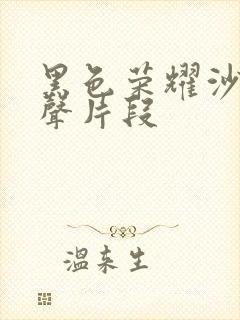 黑色荣耀沙
聲片段
温来生